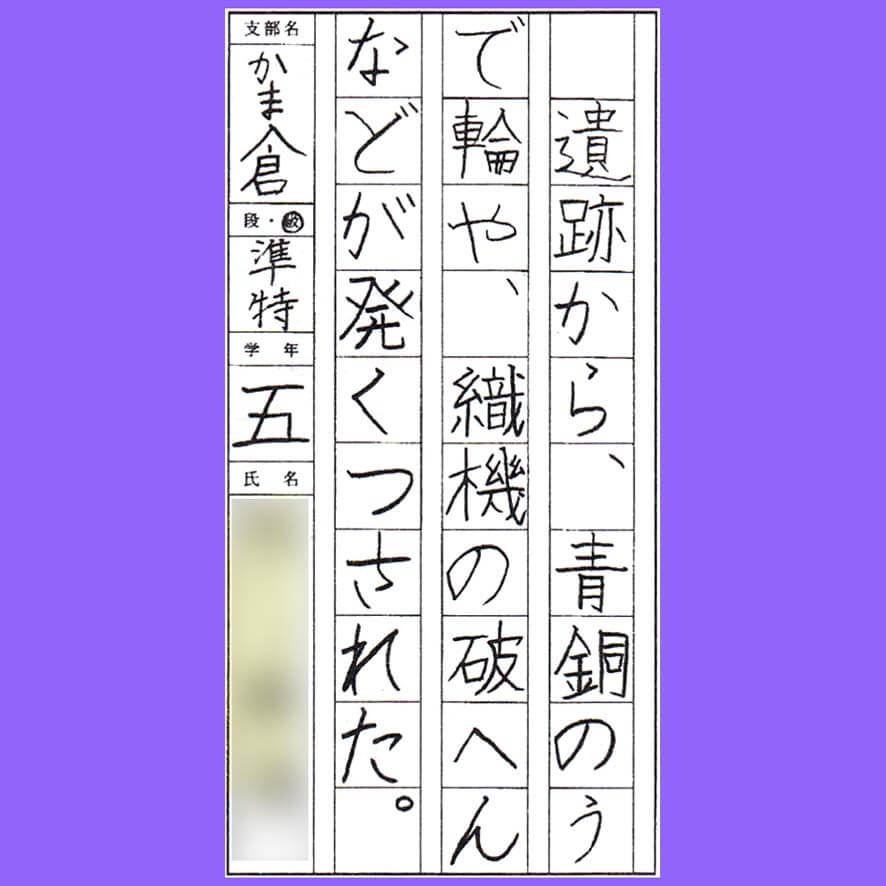 遺跡から、青銅のう
で輪や、織機の破へん
などが発くつされた。
支部名
かま倉
段・級
準特
学年
五
氏名